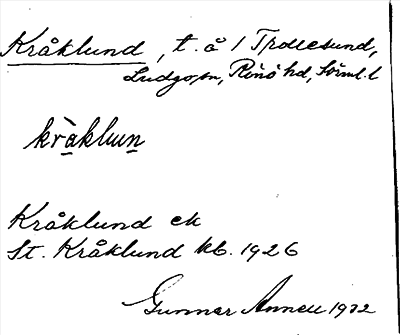 Kråklund, t. å 1 Trollesund,
Ludgo sn, Rönö hd, Sörml. l
kråklun
Kråklund ek
St. Kråklund kb. 1926
Gunnar Annell 1932